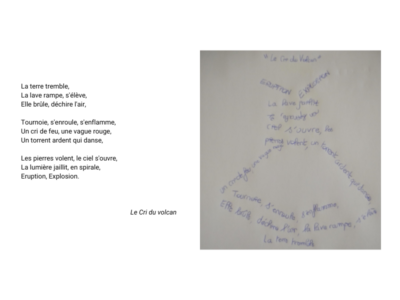 La terre tremble,
La lave rampe, s'élève,
Elle brûle, déchire l'air,
Tournoie, s'enroule, s'enflamme,
Un cri de feu, une vague rouge,
Un torrent ardent qui danse,
Les pierres volent, le ciel s'ouvre,
La lumière jaillit, en spirale,
Eruption, Explosion.
Le Cri du volcan
"Le Cri du Volcan"
ciel s'ouvre, les
pierres volent, un torrent ardent qui danse
Tournoie, s'enroule, s'enflamme,
Elle brûle, déchire l'air, la lave rampe, s'élève
La terre tremble